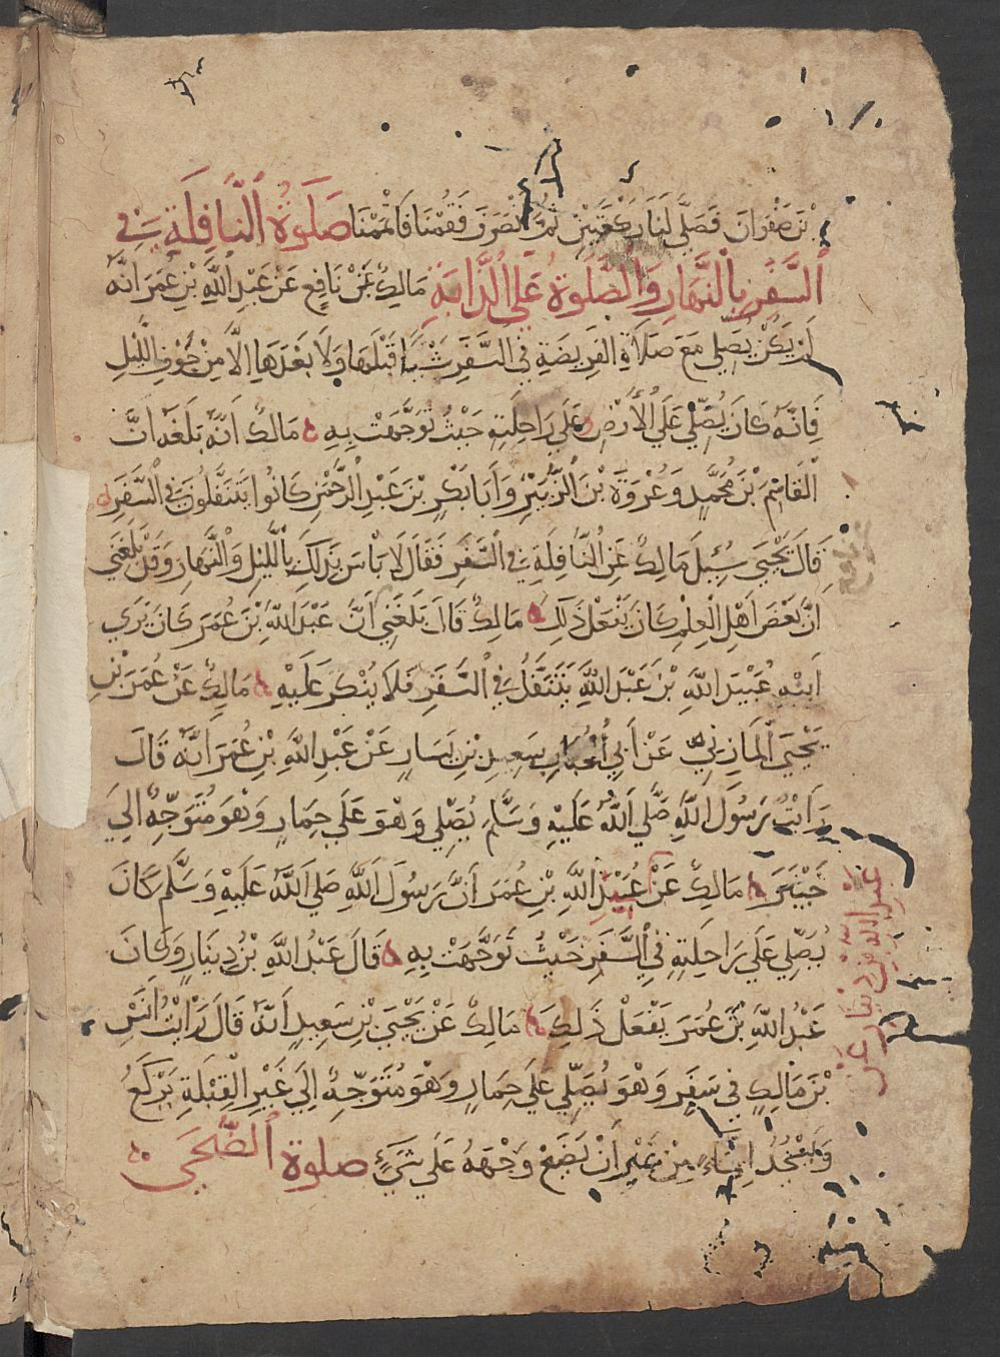 بْنَ صَفْوَانَ فَصَلَّى لَنَا رَكْعَتَيْنِ ثُمَّ انْصَرَفَ فَقُمْنَا فَأَتْمَمْنَا صَلَوةُ النَّافِلَةِ فِي
السَّفَرِ بِالنَّهَارِ وَالصَّلَوةُ عَلَى الدَّابَّةِ مَالِكٌ عَنْ نَافِعٍ عَنْ عَبْدِ اللَّهِ بْنِ عُمَرَ أَنَّهُ
لَمْ يَكُنْ يُصَلِّي مَعَ صَلَاةِ الفَرِيضَةِ فِي السَّفَرِ شَيْئًا قَبْلَهَا وَلَا بَعْدَهَا إِلَّا مِنْ جَوْفِ اللَّيْلِ
فَإِنَّهُ كَانَ يُصَلِّي عَلَى الْأَرْضِ وَعَلَى رَاحِلَتِهِ حَيْثُ تَوَجَّهَتْ بِهِ ه مَالِكٌ أَنَّهُ بَلَغَهُ أَنَّ
الْقَاسِمَ بْنَ مُحَمَّدٍ وَعُرْوَةَ بْنَ الزُّبَيْرِ وَأَبَا بَكْرِ بْنَ عَبْدِ الرَّحْمَنِ كَانُوا يَتَنَفَّلُونَ فِي السَّفَرِ ه
قَالَ يَحْيَى سُئِلَ مَالِكٌ عَنِ النَّافِلَةِ فِي السَّفَرِ فَقَالَ لَا بَأْسَ بِذَلِكَ بِاللَّيْلِ وَالنَّهَارِ وَقَدْ بَلَغَنِي
أَنَّ بَعْضَ أَهْلِ الْعِلْمِ كَانَ يَفْعَلُ ذَلِكَ ه مَالِكٌ قَالَ بَلَغَنِي أَنَّ عَبْدَ اللَّهِ بْنَ عُمَرَ كَانَ يَرَى
ابْنَهُ عُبَيْدَ اللَّهِ بْنَ عَبْدِ اللَّهِ يَتَنَفَّلُ فِي السَّفَرِ فَلَا يُنْكِرُ عَلَيْهِ ه مَالِكٌ عَنْ عُمَرَ بْنِ
يَحْيَى الْمَازِنِيِّ عَنْ أَبِي الْحُبَابِ سَعِيدِ بْنِ يَسَارٍ عَنْ عَبْدِ اللَّهِ بْنِ عُمَرَ أَنَّهُ قَالَ
رَأَيْتُ رَسُولَ اللَّهِ صَلَّى اللَّهُ عَلَيْهِ وَسَلَّمَ يُصَلِّي وَهْوَ عَلَى حِمَارٍ وَهْوَ مُتَوَجِّهٌ إِلَى
خَيْبَرَ ه مَالِكٌ عَنْ عُبَيْدِ اللَّهِ بْنِ عُمَرَ أَنَّ رَسُولَ اللَّهِ صَلَّى اللَّهُ عَلَيْهِ وَسَلَّمَ كَانَ
يُصَلِّي عَلَى رَاحِلَتِهِ فِي السَّفَرِ حَيْثُ تَوَجَّهَتْ بِهِ ه قَالَ عَبْدُ اللَّهِ بْنُ دِينَارٍ وَكَانَ
عَبْدُ اللَّهِ بْنُ عُمَرَ يَفْعَلُ ذَلِكَ ه مَالِكٌ عَنْ يَحْيَى بْنِ سَعِيدٍ أَنَّهُ قَالَ رَأَيْتُ أَنَسَ
بْنَ مَالِكٍ فِي سَفَرٍ وَهْوَ يُصَلِّي عَلَى حِمَارٍ وَهْوَ مُتَوَجِّهٌ إِلَى غَيْرِ الْقِبْلَةِ يَرْكَعُ
وَيَسْجُدُ إِيمَاءً مِنْ غَيْرِ أَنْ يَضَعَ وَجْهَهُ عَلَى شَيْءٍ صلوة الضُّحَى ه
عبد الله بن دينار عن